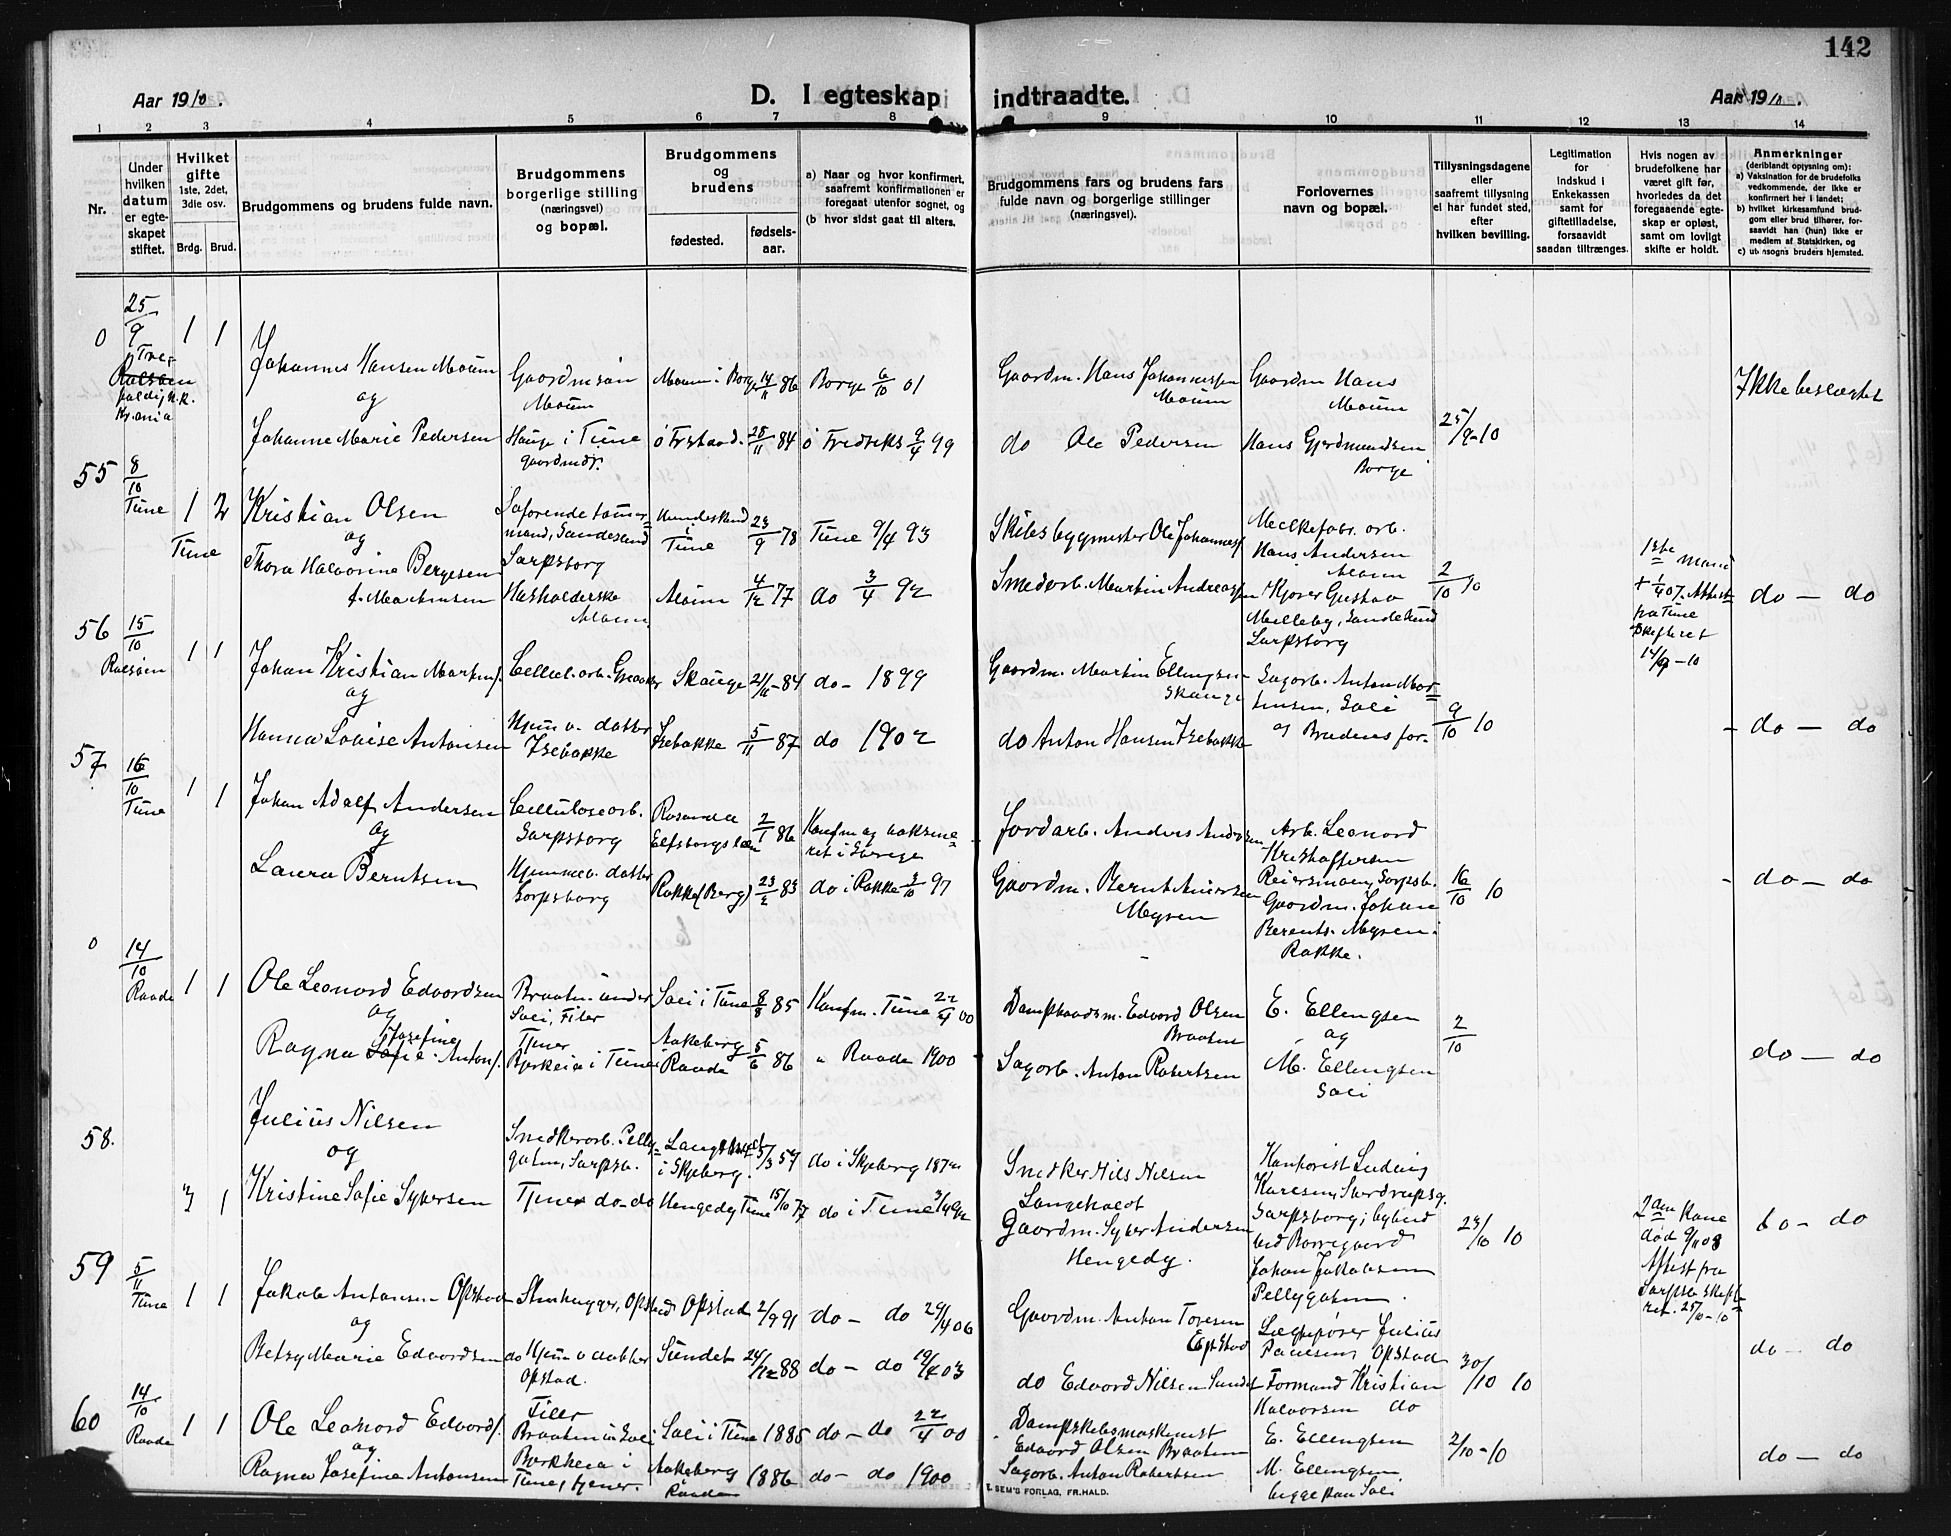 142
Aar 1910.
D. I egteskap indtraadte.
Aar 1910.
1 2 3 4 5 6 7 8 9 10 11 12 13 14
Nr.
Under hvilken datum er egteskapet stiftet.
Hvilket gifte 1ste, 2det, 3die osv.
Brdg. Brud.
Brudgommens og brudens fulde navn.
Brudgommens borgerlige stilling (næringsvei) og bopæl.
Brudgommens og brudens
fødested.
fødselsaar.
a) Naar og hvor konfirmert, saafremt konfirmationen er foregaat utenfor sognet, og
(b hvor sidst gaat til alters.
Brudgommens fars og brudens fars fulde navn og borgerlige stillinger (næringsvei).
Forlovernes navn og bopæl.
Tillysningsdagene eller saafremt tillysning ei har fundet sted, efter hvilken bevilling.
Legitimation for indskud i Enkekassen samt for giftetilladelse, forsaavidt saadan tiltrænges.
Hvis nogen av brudefolkene har været gift før, hvorledes da det foregaaende egteskap er opløst, samt om lovligt skifte er holdt.
Anmerkninger
(deriblandt opysning om):
a) Vaksination for de brudefolks vedkommende, der ikke er konfirmert her i landet;
b) hvilket kirkesamfund brudgom eller brud tilhører, forsaavidt han (hun) ikke er medlem av Statskirken, og
c) utensogns bruders hjemsted.
0 25/9 1 1
Johannes Hansen Moum Gaardmsøn Moum Moum i Borge 14/11 86 Borge 6/10 01 Gaardm. Hans Johannessen Moum Gaardm Hans Moum Ikke beslægtet
og
Johanne Marie Pedersen Hauge i Tune gaardmdr. Ø Frstad. 28/11 84 Ø Fredriks 9/4 99 do Ole Pedersen Hans Gjerdmundsen Borge 25/9-10
55 8/10 Tune 1 2 Kristian Olsen Sarpsborg Tune 23/9 78 Tune 9/4 93 Ole Johanness. Hans Andersen Aloum
og
Tune Thora Halvorine Bergesen Husholderske Aloum 4/12 77 do 3/4 92 Smedarb. Martin Andreassen Gustav Sarpsborg 2/10 10 1ste Mand + 1/4 07. Attest fra Tune skifteret 14/9-10 do - do
56 15/10 Rolsøen 1 1 Johan Kristian Martins. Cellul. arb. Greaaker Skauge 2/11-84 do - 1899 Gaardm. Martin Ellingsen Skauge Sagarb. Anton Mortensen, Soli
og
Hanna Lovise Antonsen Hjem v. datter Isebakke Isebakke 5/11 87 do 1902 do Anton Hansen Isebakke og Brudens far. 9/10 10 - do - do
57 16/10 Tune 1 1 Johan Adolf Andersen Celluloseorb. Sarpsborg Elfsborgs læn 2/1 86 Konfm og vaksineret i Sverige Jordarb. Anders Andersen Arb. Leonord Kristoffersen
og
Laura Berntsen Hjemmev. datter Sarpsborg Rokke (Berg) 23/2 83 do i Rokke 3/10 97 Gaardm. Bernt Andersen Mysen Gaardm. Johan Berents. Mysen. Rokke. 16/10 10 - do - do
0 14/10 Raade 1 1 Ole Leonard Edvardsen Braaten under Soli, Filer Soli i Tune 8/8 85 Konfm. Tune 22/4 00 Edvard Olsen Braaten E. Ellingsen
og
Ragna Josefine Antons. Tjener Bjerkeia i Tune Aakeberg i Raade 5/6 86 " Raade 1900 Sagorb. Anton Robertsen og M. Ellingsen Soli 2/10 do - do
58. Julius Nilsen Snedkerarb. Pellygaten, Sarpsb. i Skjeberg. 5/3 57 do i Skjeberg 1872 Snedker Nils Nilsen Langeholdt
og
3 1 Kristine Sofie Syversen Tjener do-do Hengedy Tune 15/10 77 do i Tune Gaardm. Syver Andersen Hengedy. Johan Jakobsen Pellygaten. 23/10 10 2den Kone død 9/11 08 Attest fra Sarpsb. Skifteret. 25/10-10 do - do
59 5/11 Tune 1 1 Jakob Antonsen Opstad Stenhugger, Opstad Opstad 2/9 91 do - do 29/4 06 Gaardm. Anton Toresen Opstad Julius Paulsen, Opstad
og
Betsy Marie Edvardsen do Hjem v datter Opstad. Sundet 24/12 88 do - do 19/4 03 do Edvard Nilsen Sundet Formand Kristian Halvorsen do 30/10 10 do - do
60 14/10 Raade 1 1 Ole Leonord Edvards. Filer Braaten u. Soli Soli i Tune 1885 do - do 22/4 00 Dampskibsmaskinist Edvard Olsen Braaten E. Ellingsen 2/10-10
og
Ragna Josefine Antonsen Bjerkheia i Tune, tjener. Aakeberg Raade 1886 do - do 1900 Sagorb. Anton Robertsen M. Ellingsen, begge paa Soli do - do
E. SEM'S FORLAG, FR.HALD.